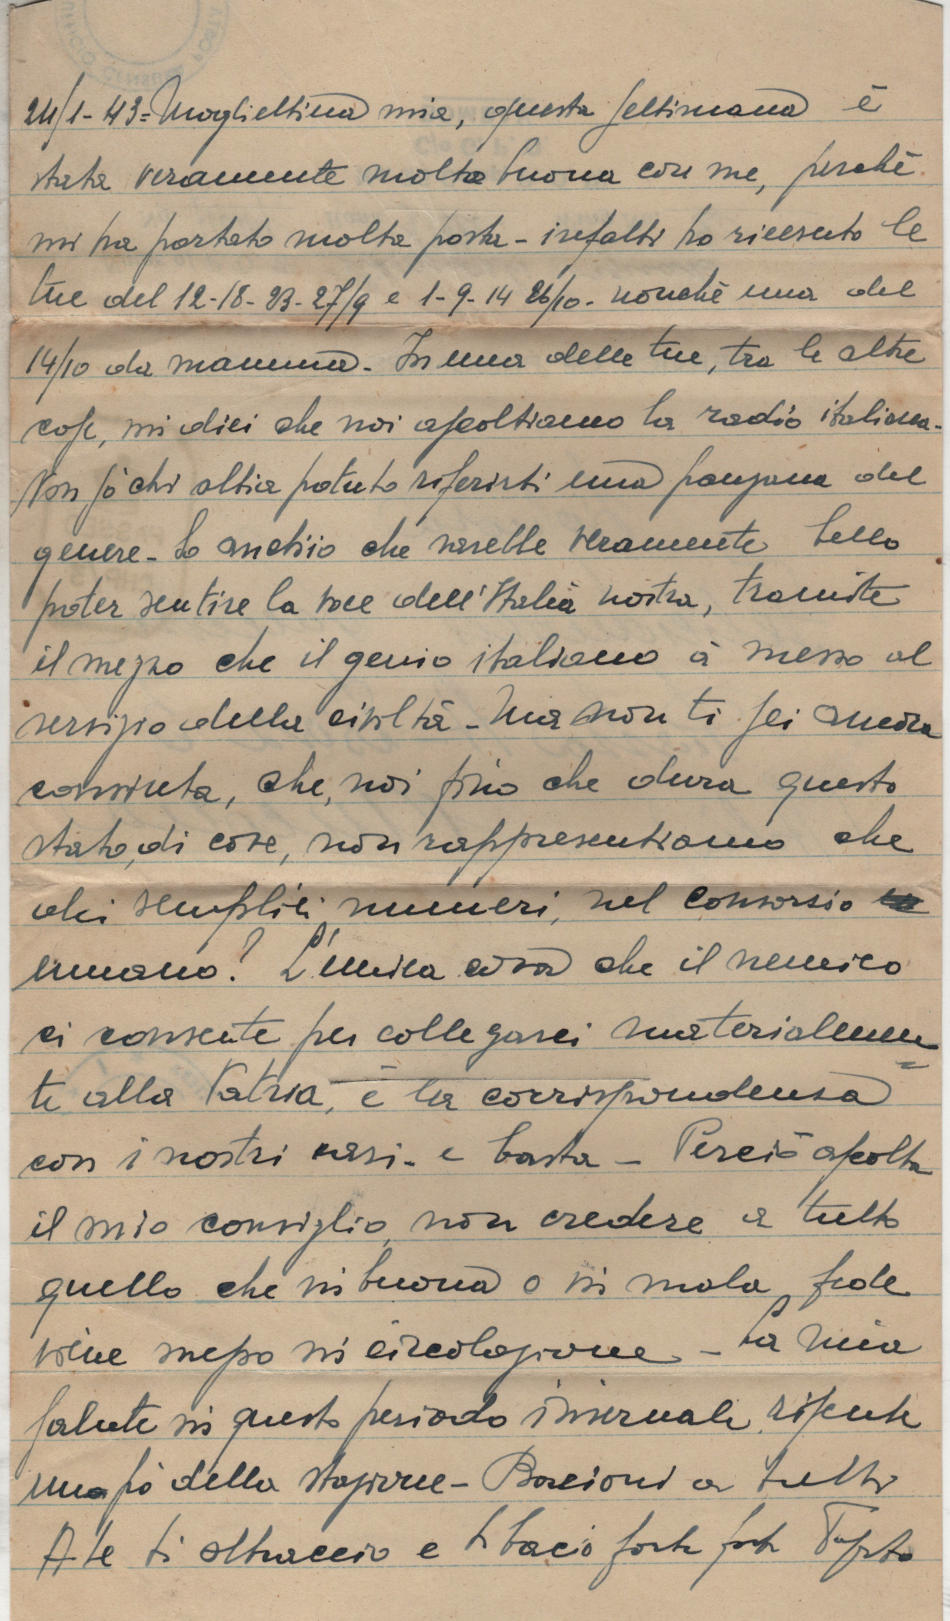 24/1-43= Mogliettina mia, questa settimana è
stata veramente molto buona con me, perchè
mi ha portato molta posta - infatti ho ricevuto le
tue del 12-18-23-27/9 e 1-9-14 26/10- nonchè una del
14/10 da mamma. In una delle tue, tra le altre
cose, mi dici che noi ascoltiamo la radio italiana-
Non sò chi abbia potuto riferirti una panzana del
genere- So anch'io che sarebbe veramente bello
poter sentire la voce dell'Italia nostra, tramite
il mezzo che il genio italiano à messo al
servizio della civiltà - Ma non ti sei ancora
convinta, che, noi fino che dura questo
stato, di cose, non rappresentiamo che
dei semplici numeri, nel consorsio
umano? L'unica cosa che il nemico
ci consente per collegarci materialmen
te alla Patria, è la corrispondensa
con i nostri cari- e basta - Perciò ascolta
il mio consiglio, non credere a tutto
quello che in buona o in mala fede
viene messo in circolazione - La mia
salute in questo periodo invernale, risente
un pò della stagione - Bacioni a tutti
A te ti abbraccio e ti bacio forte forte